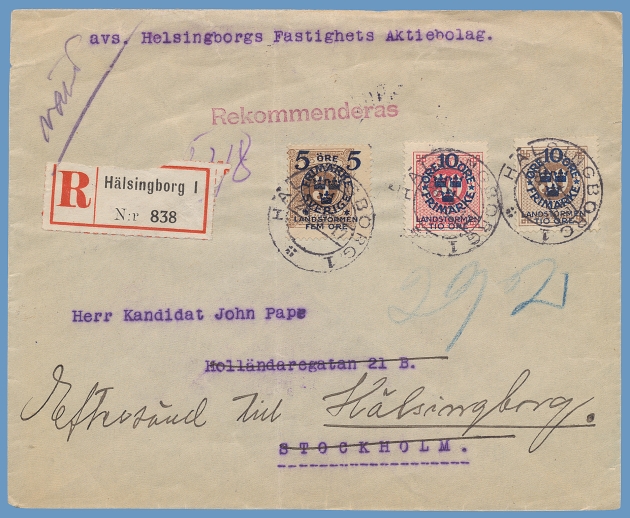 avs. Helsingborgs Fastighets Aktiebolag.
Rekommenderas
R Hälsingborg 1
N:r 838
5 ÖRE 5
FRIMÄRKE
SVERIGE
LANDSTORMEN
FEM ÖRE
HÄLSINGBORG 1
10
ÖRE ÖRE
FRIMÄRKE
LANDSTORMEN
TIO ÖRE
HÄLSINGBORG 1
10
ÖRE ÖRE
FRIMÄRKE
LANDSTORMEN
TIO ÖRE
HÄLSINGBORG 1
Herr Kandidat John Pape
Holländaregatan 21 B.
Eftersänd till Hälsingborg.
STOCKHOLM.